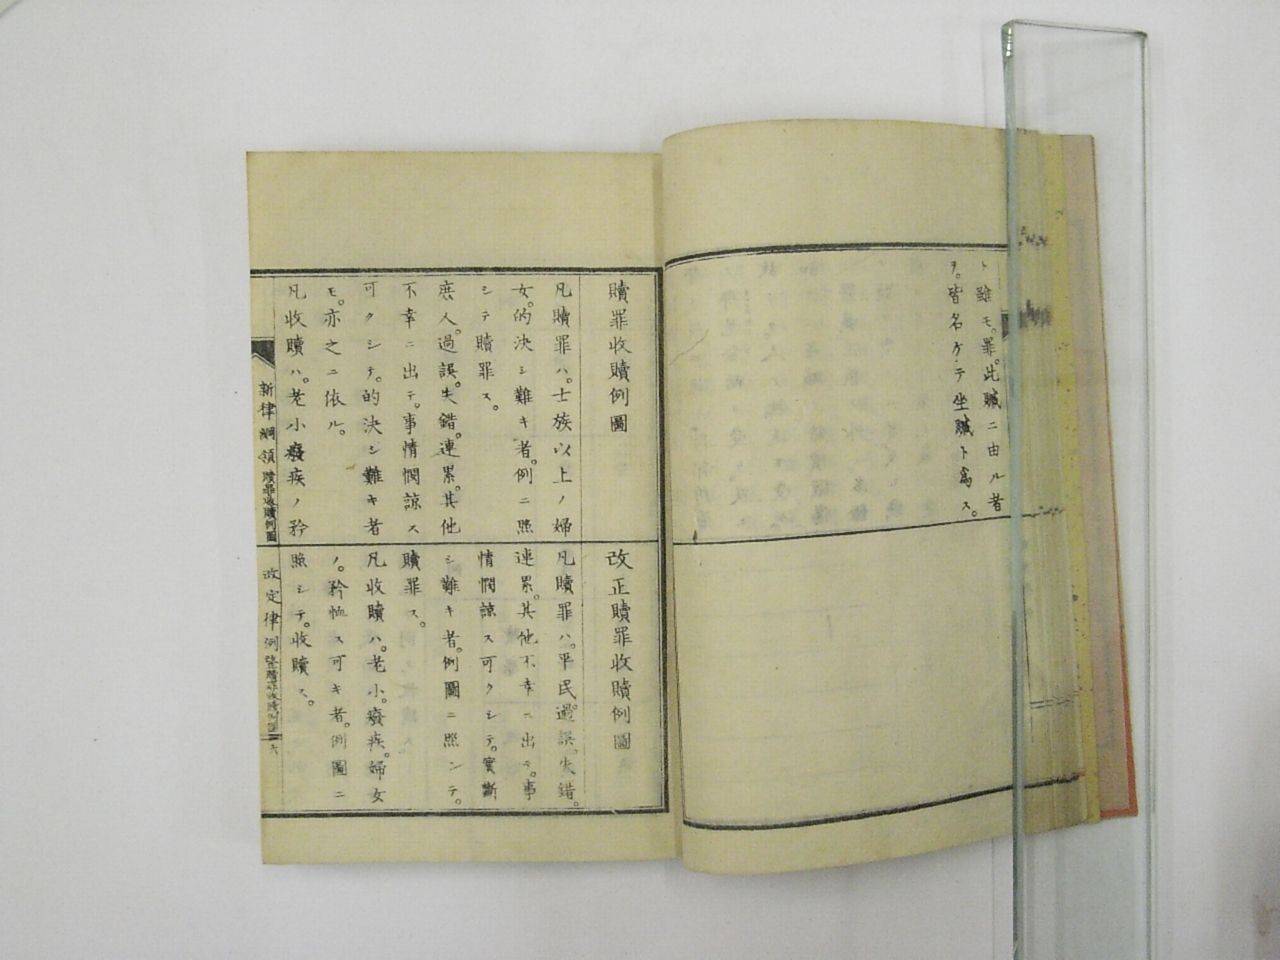 ト雖モ。罪。此贓ニ由ル者
ヲ。皆名ケテ坐贓ト爲ス。
贖罪收贖例圖
凡贖罪ハ。士族以上ノ婦
女。的決シ難キ者。例ニ照
シテ贖罪ス。
庶人。過誤。失錯。連累。其他
不幸ニ出テ。事情憫諒ス
可クシテ。的決シ難キ者
モ。亦之ニ依ル。
凡收贖ハ。老小癈疾ノ矜
改正贖罪收贖例圖
凡贖罪ハ。平民。過誤。失錯。
連累。其他不幸ニ出テ。事
情憫諒ス可クシテ。實斷
シ難キ者。例圖ニ照シテ。
贖罪ス。
凡收贖ハ。老小。癈疾。婦女
ノ。矜恤ス可キ者。例圖ニ
照シテ。收贖ス。
新律綱領 贖罪收贖例圖
改定律例 贖罪收贖例圖
六